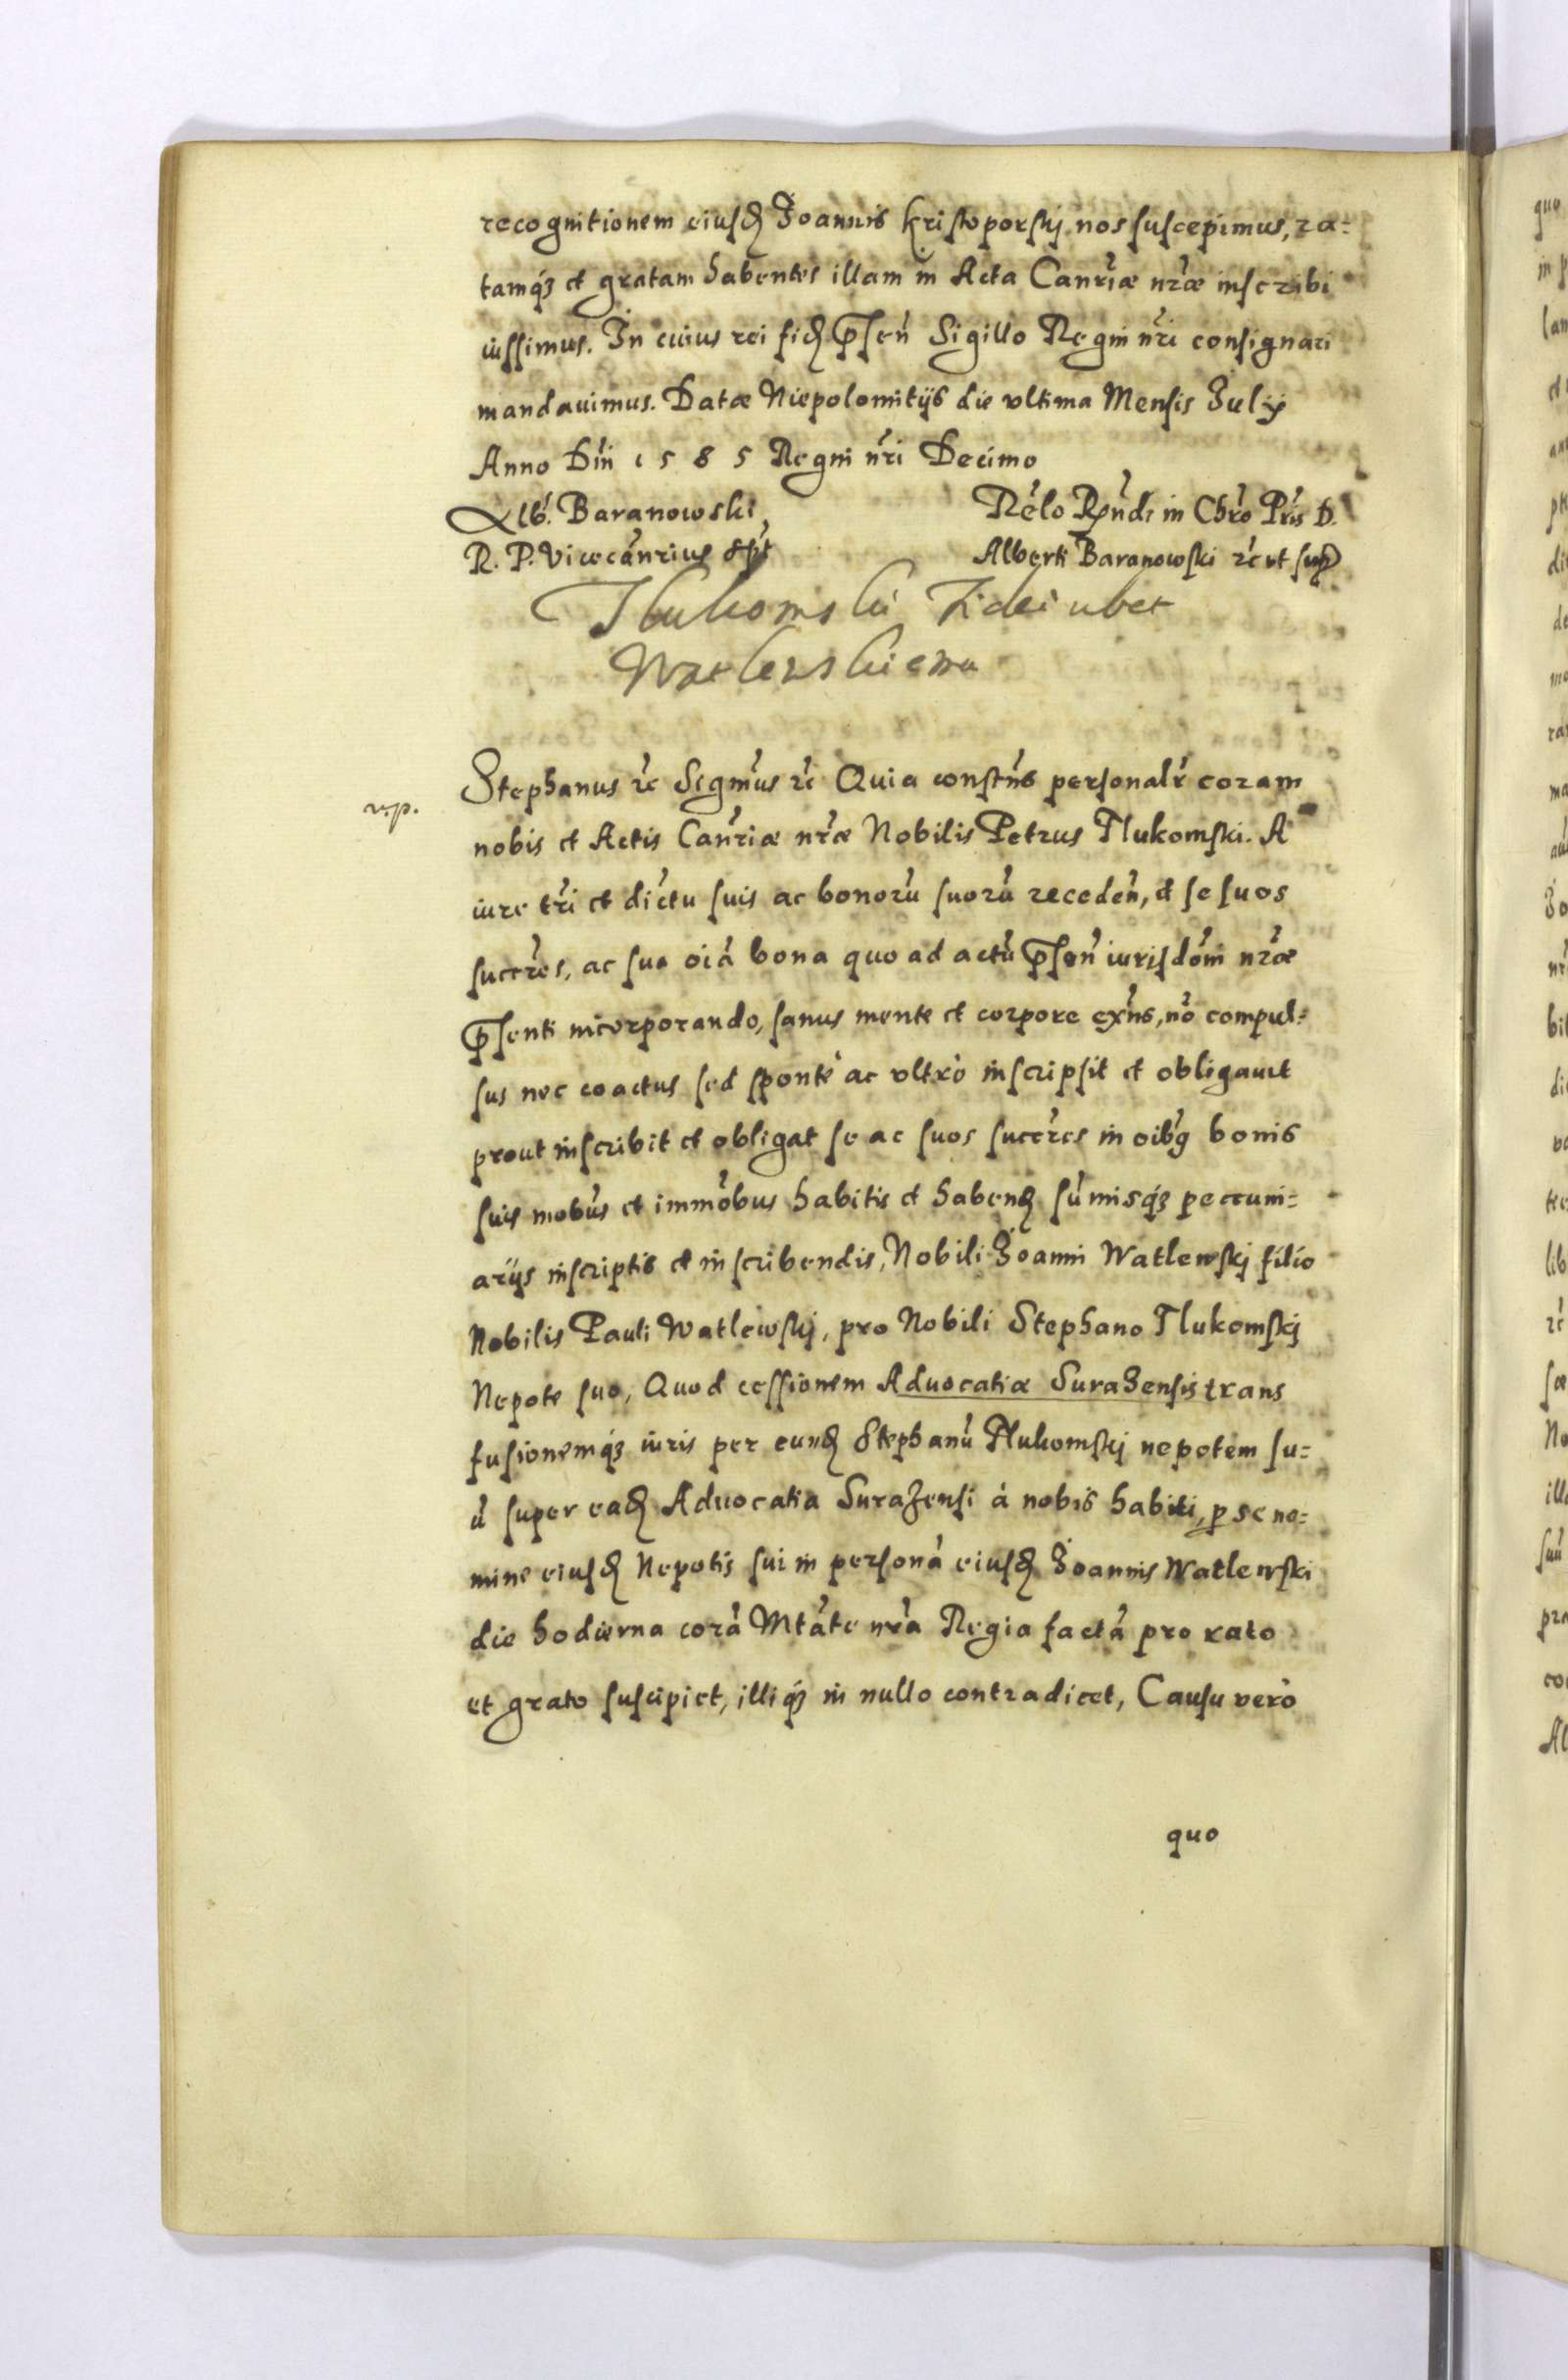 recognitionem eiusdꝫ Joannis Kristoporskj nos suscepimus, ra=
tamqꝫ et gratam habentes illam in Acta Canriæ nræ inscribi
iussimus. In cuius rei fidꝫ pnsen Sigillo Regni nri consignari
mandauimus. Datæ Niepolomitijs die vltima Mensis Julij
Anno Dni 1585 Regni nri Decimo
Alb. Baranowski
R. P. Vicecanrius sspt
Relo Rndi in Chro Pris D.
Alberti Baranowski rc ut sup
Tlukomski Fideiubet
Watlewskiemu
r.p.
Stephanus rc Segmus rc Quia constns personalr coram
nobis et Actis Canriæ nræ Nobilis Petrus Tlukomski. A
iure tri et dictu suis ac bonorũ suorũ receden, et se suos
succres, ac sua oiã bona quo ad actũ pnsen iurisdom nræ
pnsenti incorporando, sanus mente et corpore exns, nõ compul=
sus nec coactus sed sponte ac vltrò inscripsit et obligauit
prout inscribit et obligat se ac suos succres in oibg bonis
suis mobus et immobus habitis et habendꝫ sũmisqꝫ peccuni=
arijs inscriptis et inscribendis, Nobili Joanni Watlewskj filio
Nobilis Pauli Watlewskj, pro Nobili Stephano Tlukomskj
Nepote suo, Quod cessionem Aduocatiæ Surazensis trans
fusionemqꝫ iuris per eundꝫ Stephanũ Tlukomskj nepotem su=
ũ super eadꝫ Aduocatia Surazensi à nobis habiti, p se no=
mine eiusdꝫ Nepotis sui in personã eiusdꝫ Joannis Watlewski
die hodierna corã Mtate nra Regia factã pro rato
et grato suscipiet, illiqꝫ in nullo contradicet, Causu verò
quo